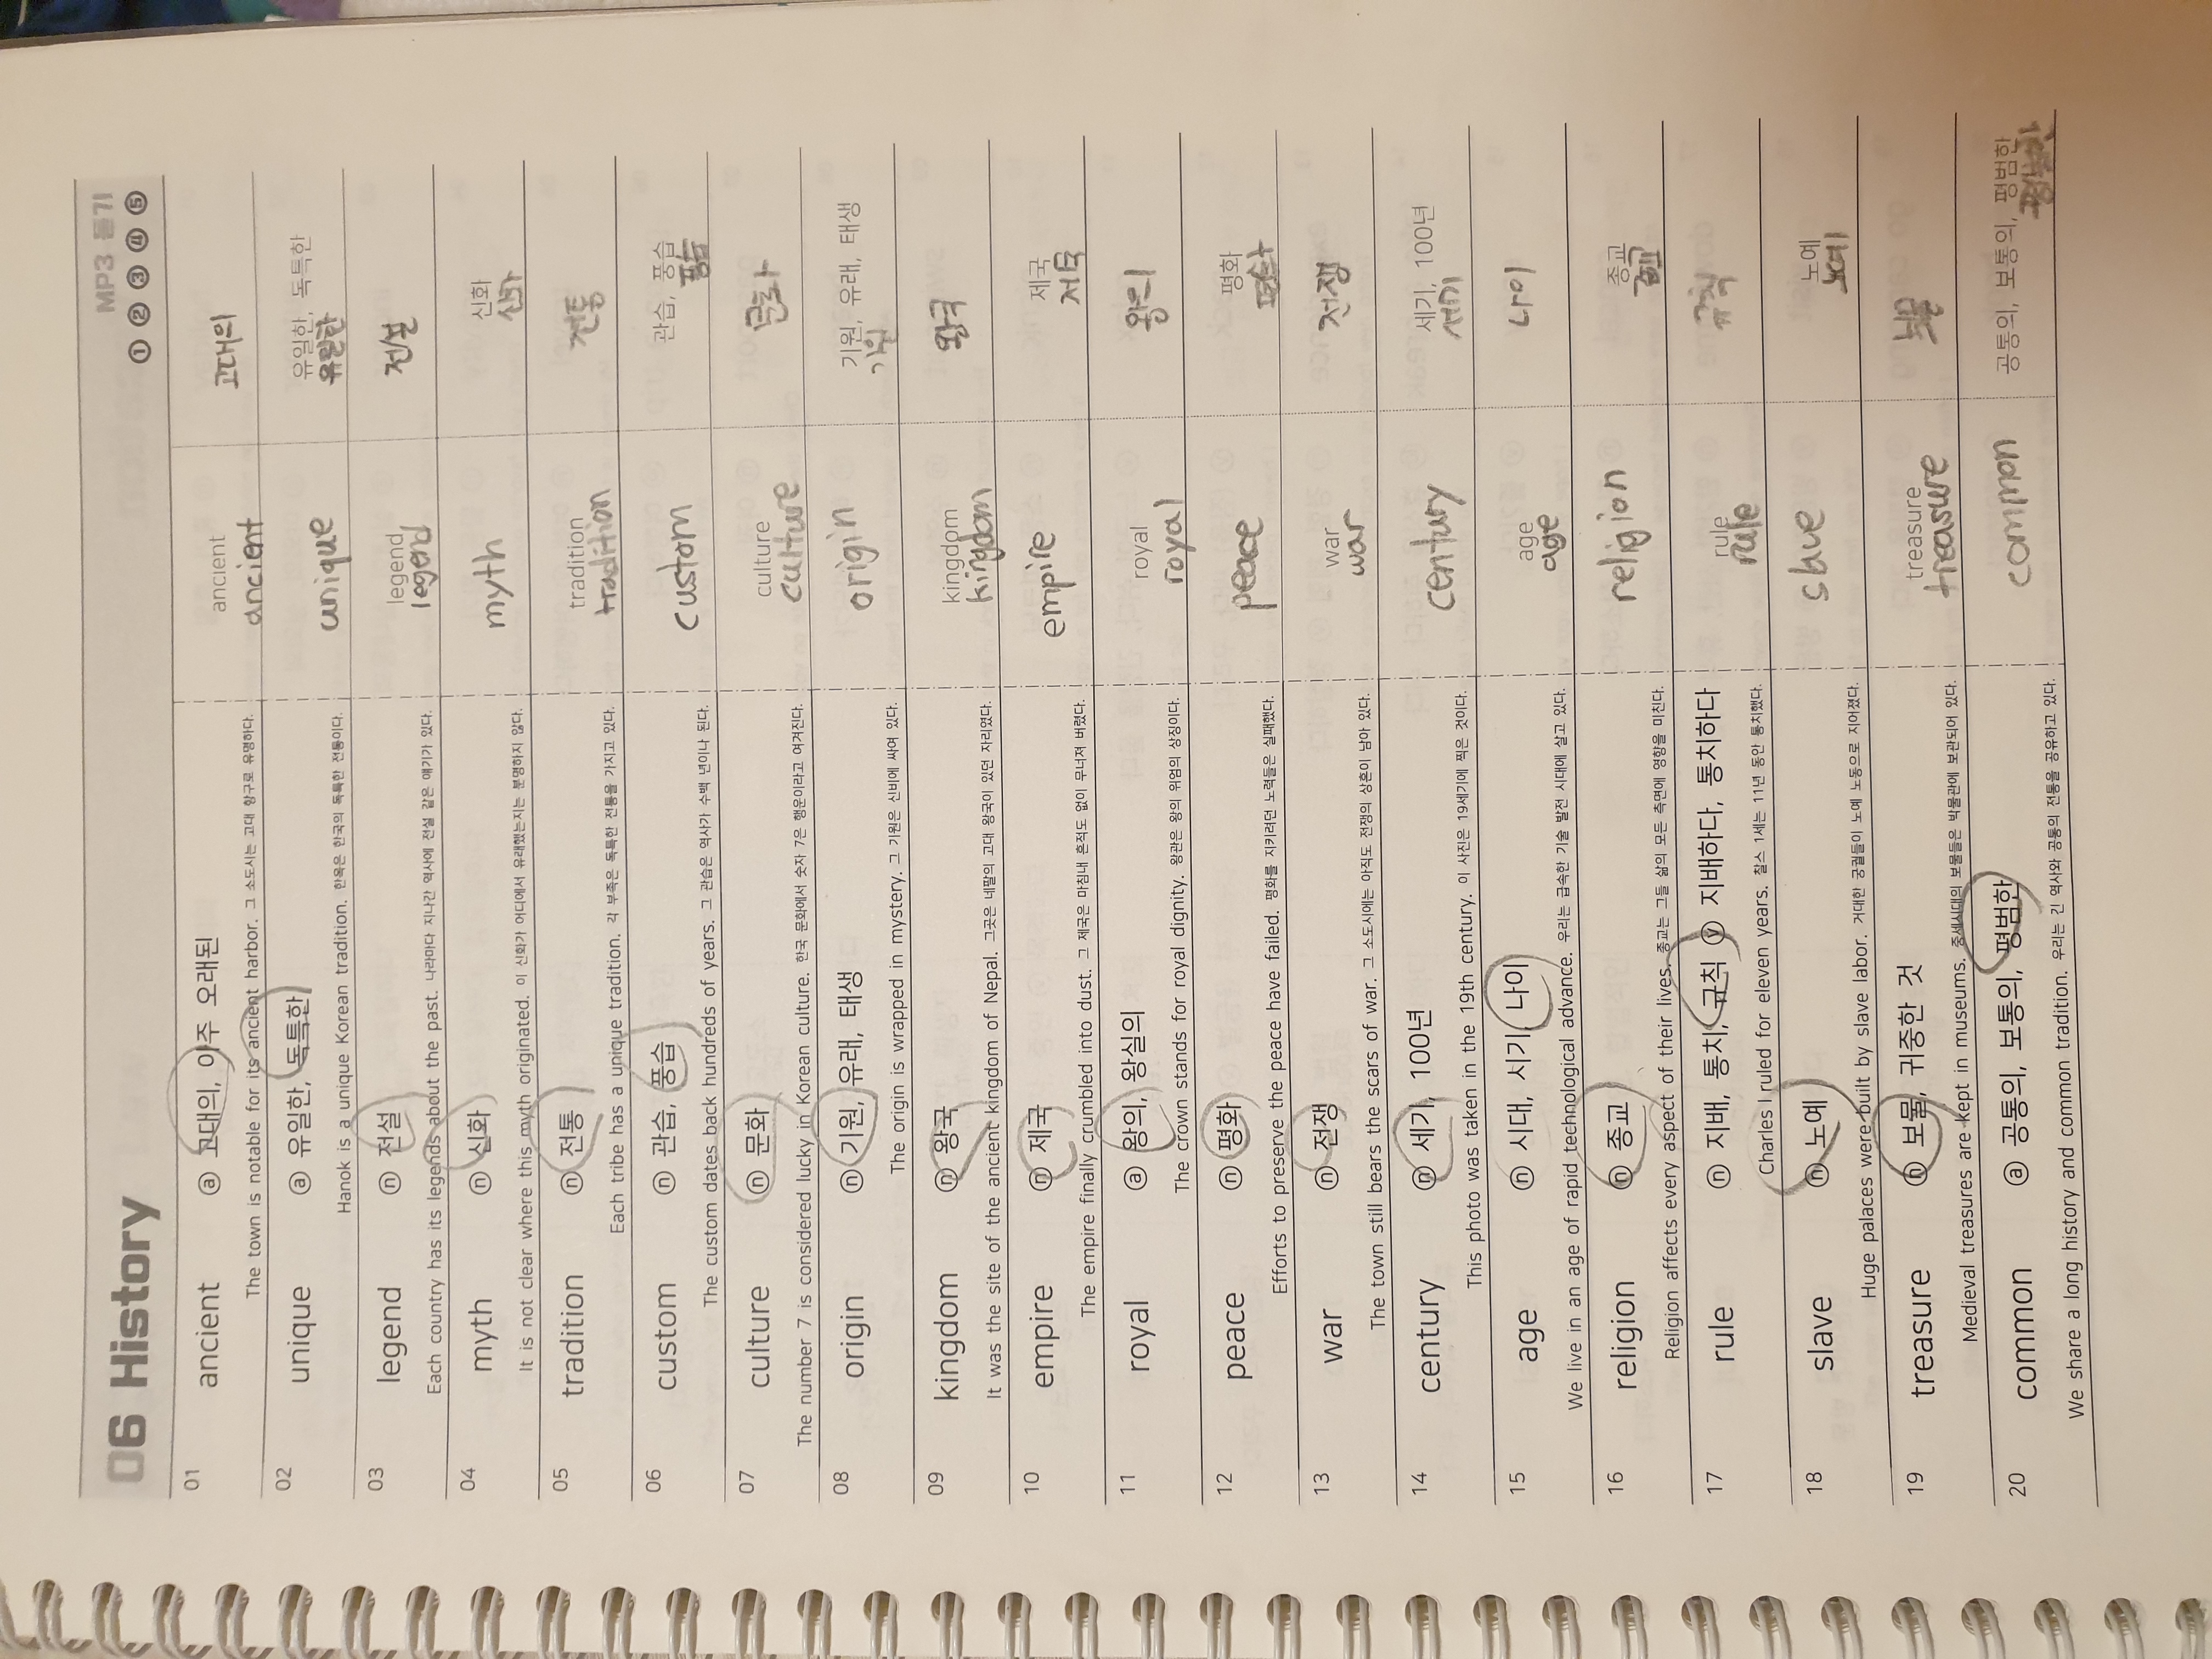 06 History
MP3 듣기
① ② ③ ④ ⑤
01 ancient ⓐ 고대의, 아주 오래된 ancient ancient 고대의
The town is notable for its ancient harbor. 그 소도시는 고대 항구로 유명하다.
02 unique ⓐ 유일한, 독특한 unique 유일한, 독특한 유일한
Hanok is a unique Korean tradition. 한옥은 한국의 독특한 전통이다.
03 legend ⓝ 전설 legend legend 전설
Each country has its legends about the past. 나라마다 지나간 역사에 전설 같은 얘기가 있다.
04 myth ⓝ 신화 myth 신화 신화
It is not clear where this myth originated. 이 신화가 어디에서 유래했는지는 분명하지 않다.
05 tradition ⓝ 전통 tradition tradition 전통
Each tribe has a unique tradition. 각 부족은 독특한 전통을 가지고 있다.
06 custom ⓝ 관습, 풍습 custom 관습, 풍습 풍습
The custom dates back hundreds of years. 그 관습은 역사가 수백 년이나 된다.
07 culture ⓝ 문화 culture culture 문화
The number 7 is considered lucky in Korean culture. 한국 문화에서 숫자 7은 행운이라고 여겨진다.
08 origin ⓝ 기원, 유래, 태생 origin 기원, 유래, 태생 기원
The origin is wrapped in mystery. 그 기원은 신비에 싸여 있다.
09 kingdom ⓝ 왕국 kingdom kingdom 왕국
It was the site of the ancient kingdom of Nepal. 그곳은 네팔의 고대 왕국이 있던 자리였다.
10 empire ⓝ 제국 empire 제국 제국
The empire finally crumbled into dust. 그 제국은 마침내 흔적도 없이 무너져 버렸다.
11 royal ⓐ 왕의, 왕실의 royal royal 왕의
The crown stands for royal dignity. 왕관은 왕의 위엄의 상징이다.
12 peace ⓝ 평화 peace 평화 평화
Efforts to preserve the peace have failed. 평화를 지키려던 노력들은 실패했다.
13 war ⓝ 전쟁 war war 전쟁
The town still bears the scars of war. 그 소도시에는 아직도 전쟁의 상흔이 남아 있다.
14 century ⓝ 세기, 100년 century 세기, 100년 세기
This photo was taken in the 19th century. 이 사진은 19세기에 찍은 것이다.
15 age ⓝ 시대, 시기, 나이 age age 나이
We live in an age of rapid technological advance. 우리는 급속한 기술 발전 시대에 살고 있다.
16 religion ⓝ 종교 religion 종교 종교
Religion affects every aspect of their lives. 종교는 그들 삶의 모든 측면에 영향을 미친다.
17 rule ⓝ 지배, 통치, 규칙 ⓥ 지배하다, 통치하다 rule rule 규칙
Charles I ruled for eleven years. 찰스 1세는 11년 동안 통치했다.
18 slave ⓝ 노예 slave 노예 노예
Huge palaces were built by slave labor. 거대한 궁궐들이 노예 노동으로 지어졌다.
19 treasure ⓝ 보물, 귀중한 것 treasure treasure 보물
Medieval treasures are kept in museums. 중세시대의 보물들은 박물관에 보관되어 있다.
20 common ⓐ 공통의, 보통의, 평범한 common 공통의, 보통의, 평범한 평범한
We share a long history and common tradition. 우리는 긴 역사와 공통의 전통을 공유하고 있다.